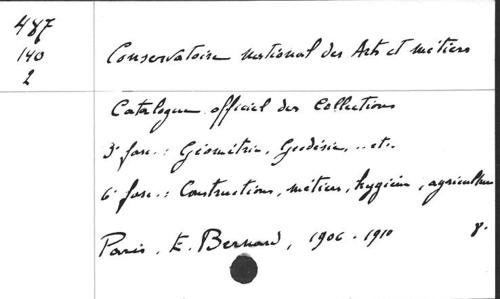 487
140
2
Conservatoire national des Arts et métiers
Catalogue officiel des Collections
3e fasc. : Géométrie, Geodésie, .. etc.
6e fasc. : Constructions, métiers, hygiène, agriculture
Paris. E. Bernard, 1906-1910 8.